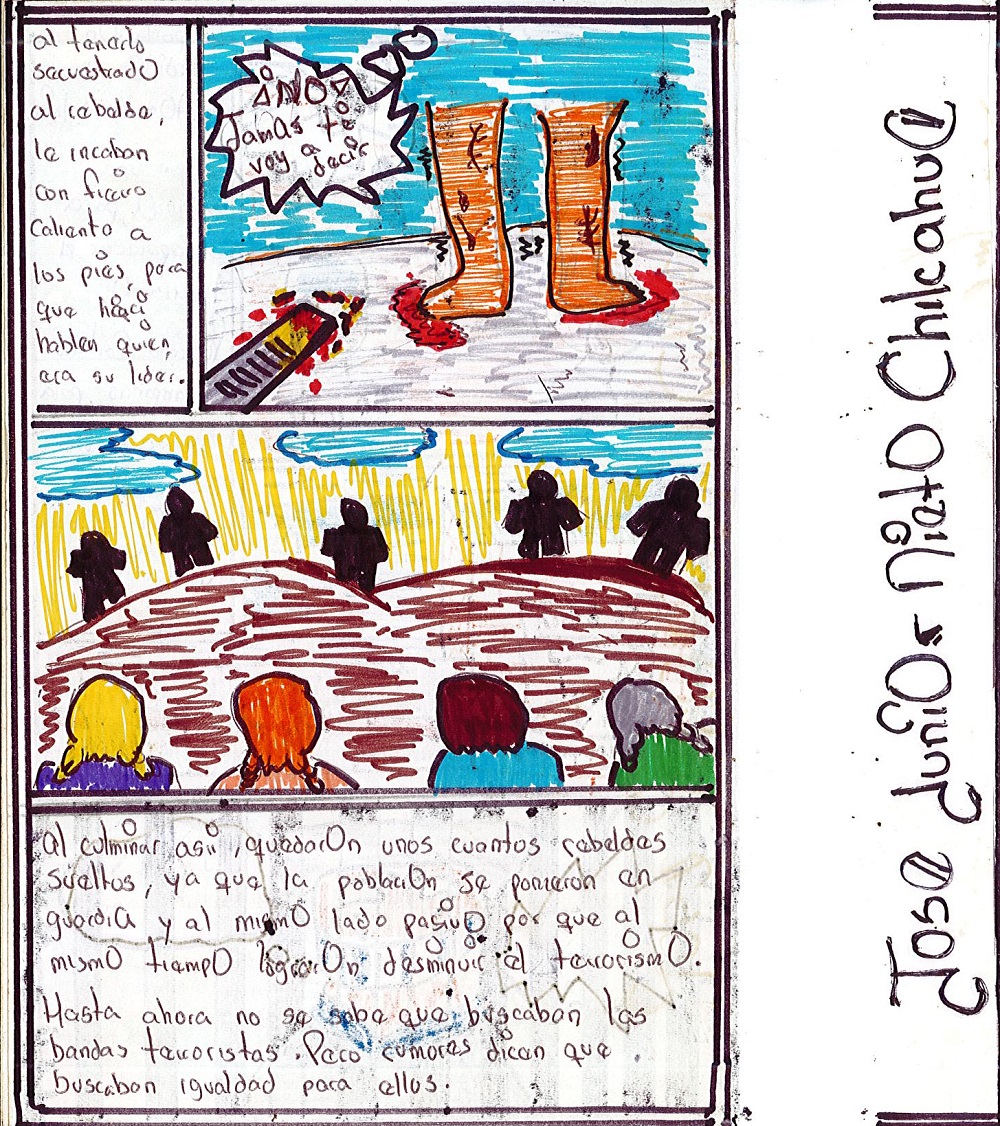 al tenerlo
secuestradO
al rebelde,
le incaban
con fierro
caliente a
los pies, para
que haci
hablen quien,
era su lider.
¡NO!
Jamas te
voy a decir
al culminar asii, quedarOn unos cuantos rebeldes
sueltos, ya que la poblaciOn se ponieron en
guardia y al mismO lado pasivO por que al
mismO tiempO lograrOn desminuir el terrorismO.
Hasta ahora no se sabe que buscaban las
bandas terroristas. Pero rumores dicen que
buscaban igualdad para ellos.
Jose JuniOr NietO Chilcahue